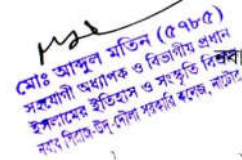 মোঃ আব্দুল মতিন (৫৭৮৫)
সহযোগী অধ্যাপক ও বিভাগীয় প্রধান
ইসলামের ইতিহাস ও সংস্কৃতি বিভাগ
নবাব সিরাজ-উদ্ দৌলা সরকারি কলেজ, নাটোর